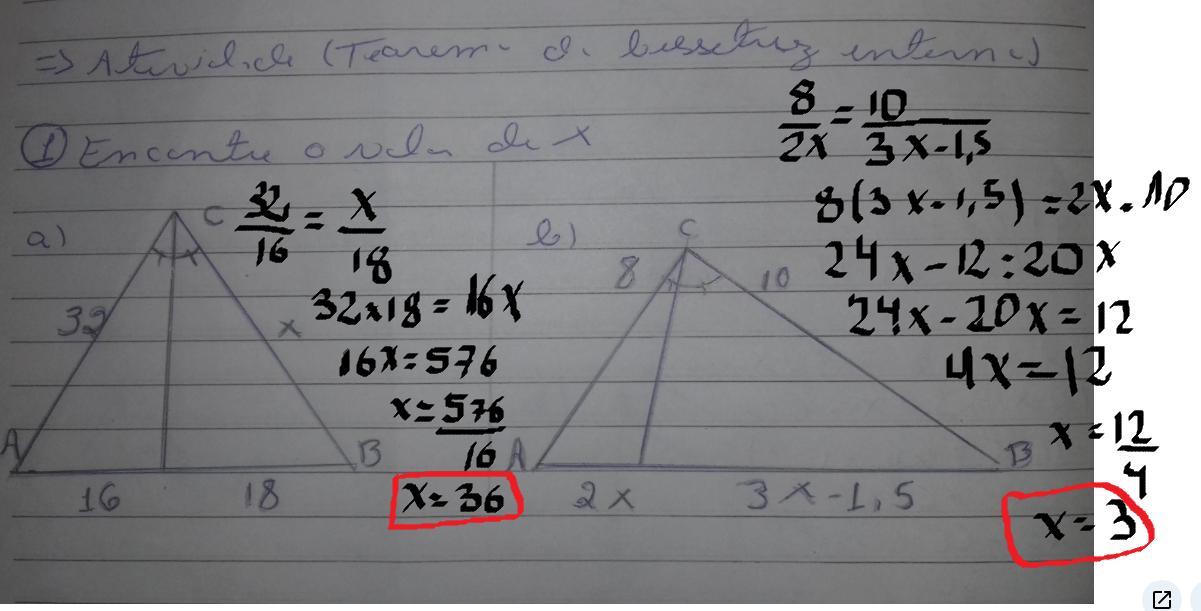 => Atividade (Teorema da bissetriz interna)
① Encontre o valor de x
a)
C
32
x
A
B
16
18
32/16 = x/18
32x18 = 16x
16x=576
x=576/16
x=36
b)
C
8
10
A
B
2x
3x-1,5
8/2x = 10/3x-1,5
8(3x-1,5)=2x.10
24x-12=20x
24x-20x=12
4x=12
x=12/4
x=3